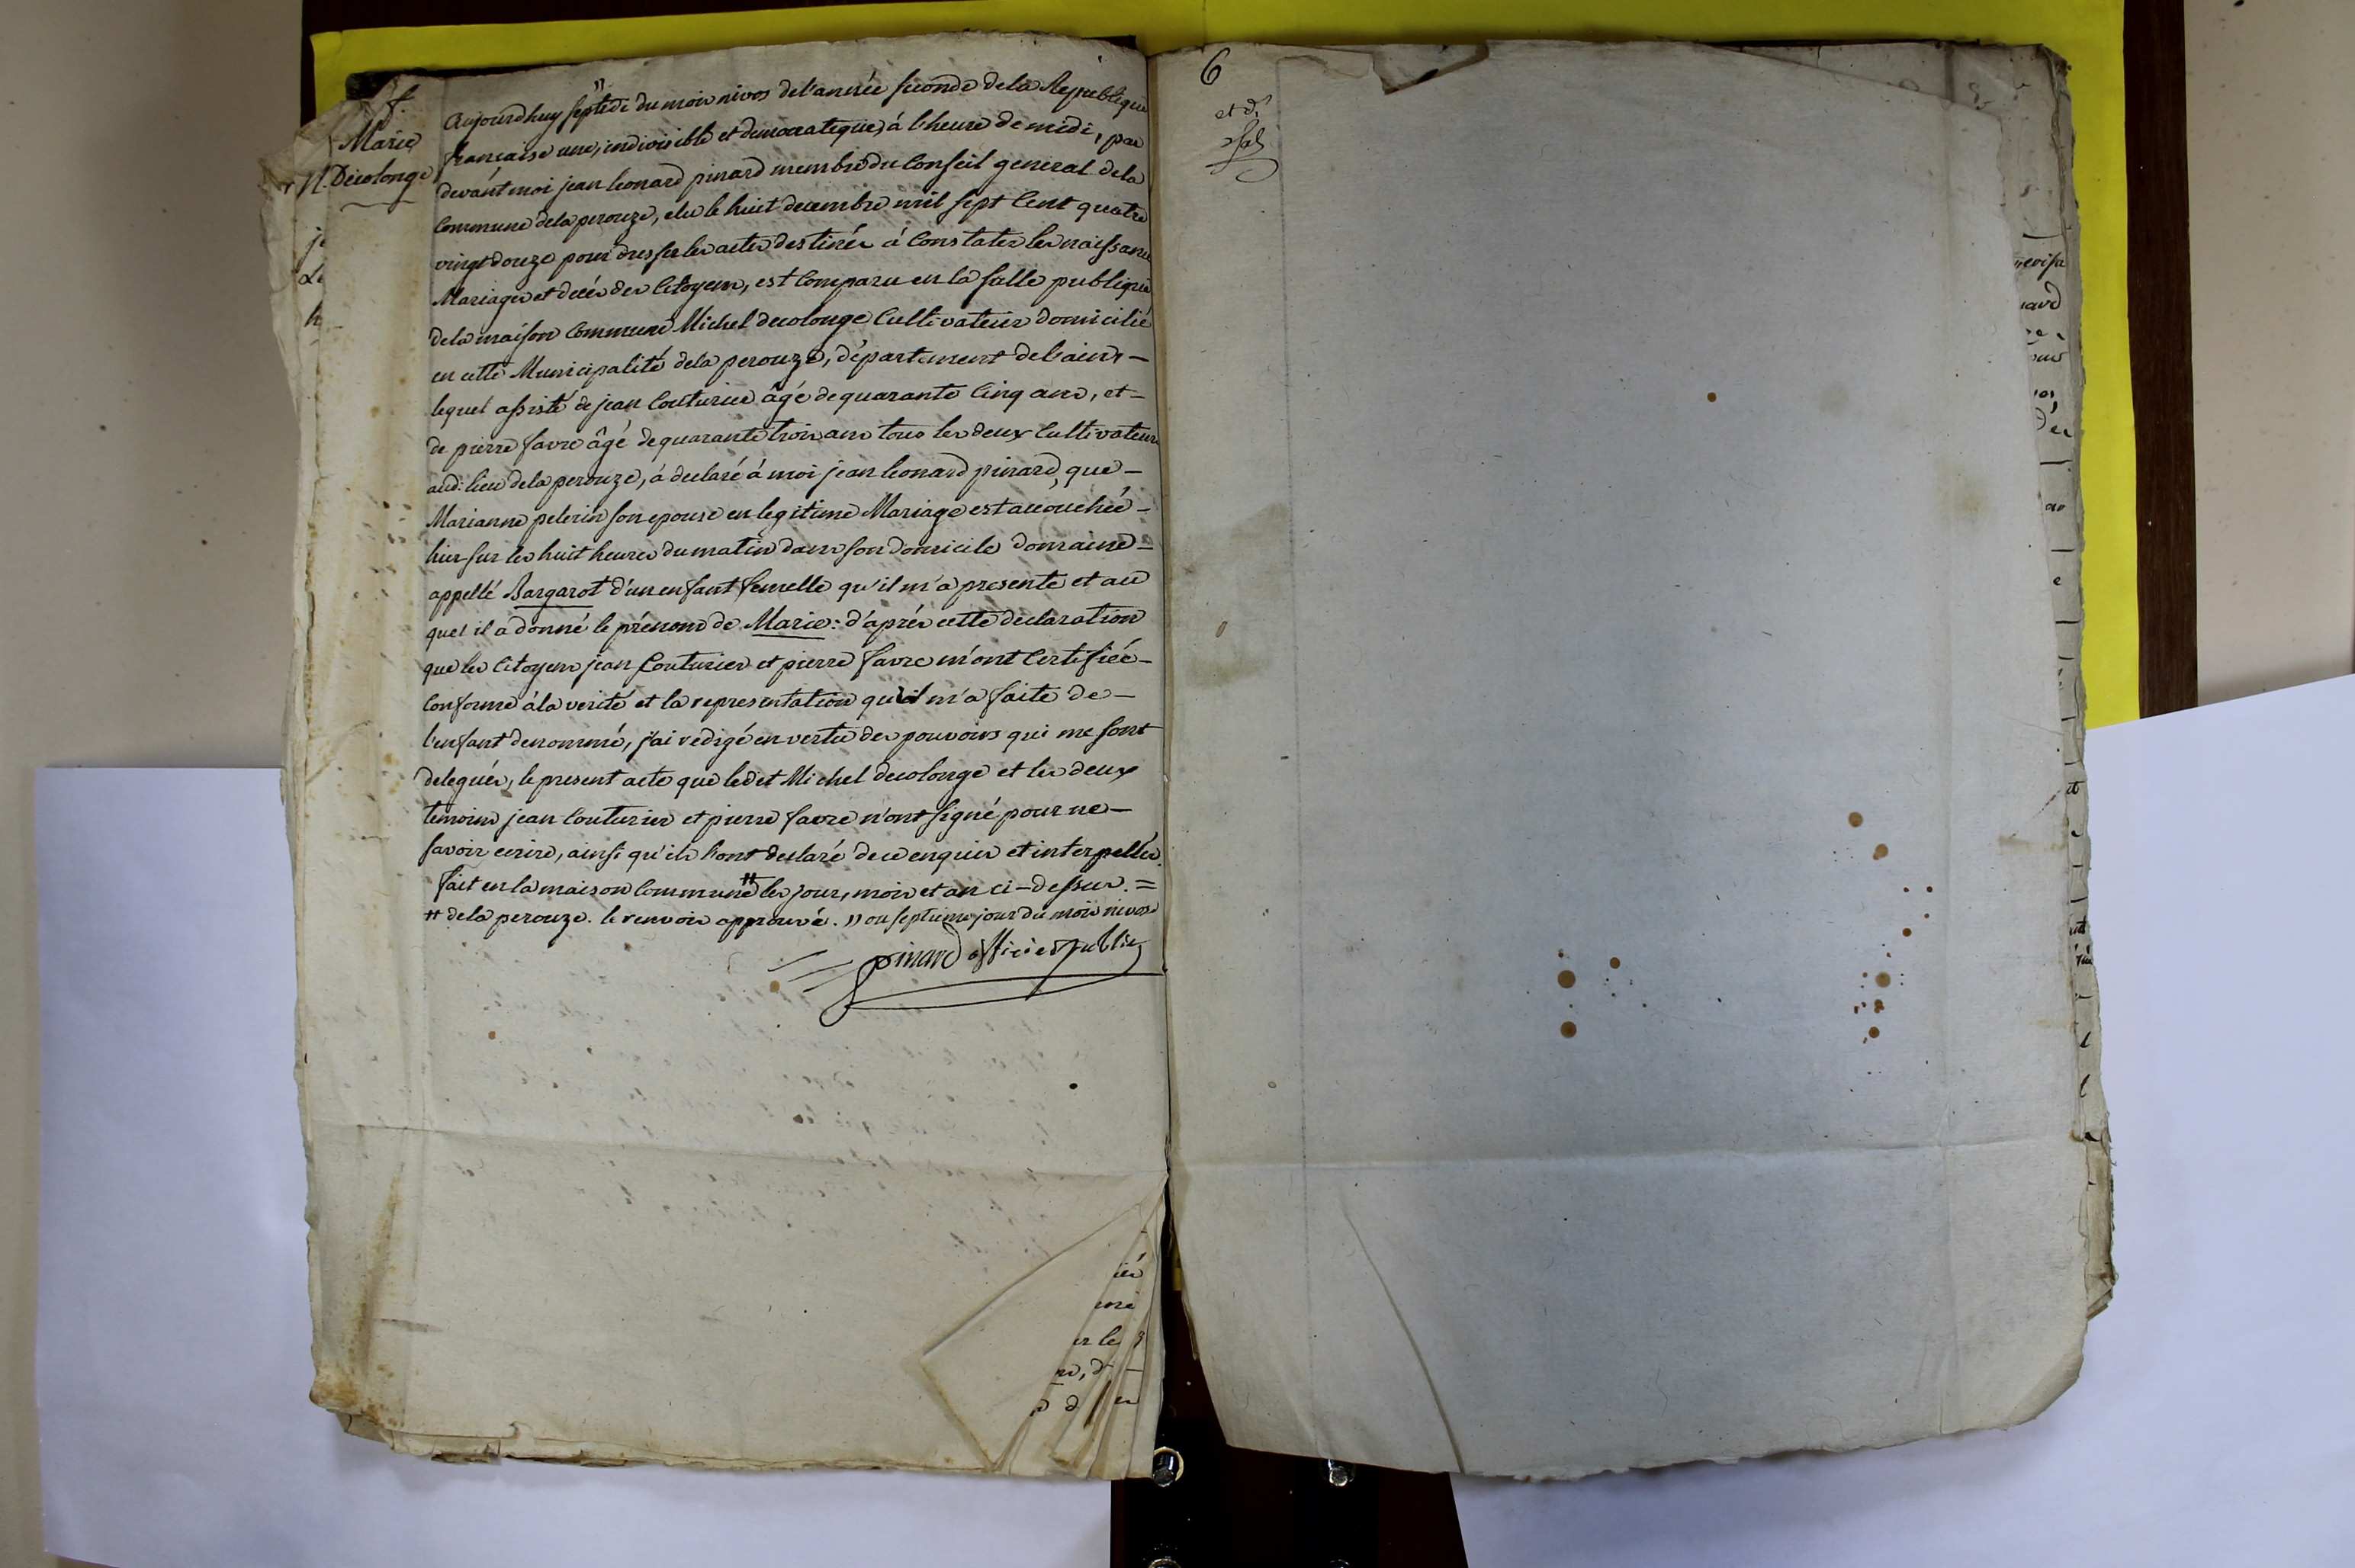 f.
Marie
Decolonge
Aujourdhuy septidi " du mois nivos de l'année seconde de la Republique
francaise une, indivisible et democratique, à l'heure de midi, par
devant moi jean leonard pinard membre du Conseil general de la
Commune de la perouze, elu le huit decembre mil sept Cent quatre
vingt douze pour dresser les actes destinés à Constater les naissances
Mariages et decés des Citoyens, est Comparu en la salle publique
de la maison Commune Michel decolonge Cultivateur domicilié
en cette Municipalité de la perouze, département de l'ain, –
lequel assisté de jean Couturier âgé de quarante Cinq ans, et –
de pierre favre âgé de quarante trois ans tous les deux Cultivateurs
aud: lieu de la perouze, à declaré à moi jean leonard pinard, que –
Marianne pelerin son epouse en legitime Mariage est accouchée –
hier sur les huit heures du matin dans son domicile domaine –
appellé Bargarot d'un enfant femelle qu'il m'a presenté et au
quel il a donné le prénom de Marie: d'après cette declaration
que les Citoyens jean Couturier et pierre favre m'ont Certifiée –
Conforme à la verité et la representation qu'il m'a faite de –
l'enfant denommé, j'ai redigé en vertu des pouvoirs qui me sont
delegués, le present acte que ledit Michel decolonge et les deux
temoins jean Couturier et pierre favre n'ont signé pour ne –
savoir ecrire, ainsi qu'ils l'ont declaré de ce enquis et interpellés.
fait en la maison Commune # les jour, mois et an ci-dessus. =
# de la perouze. le renvois approuvé. " ou septieme jour du mois nivos
pinard officier public
6
et d: